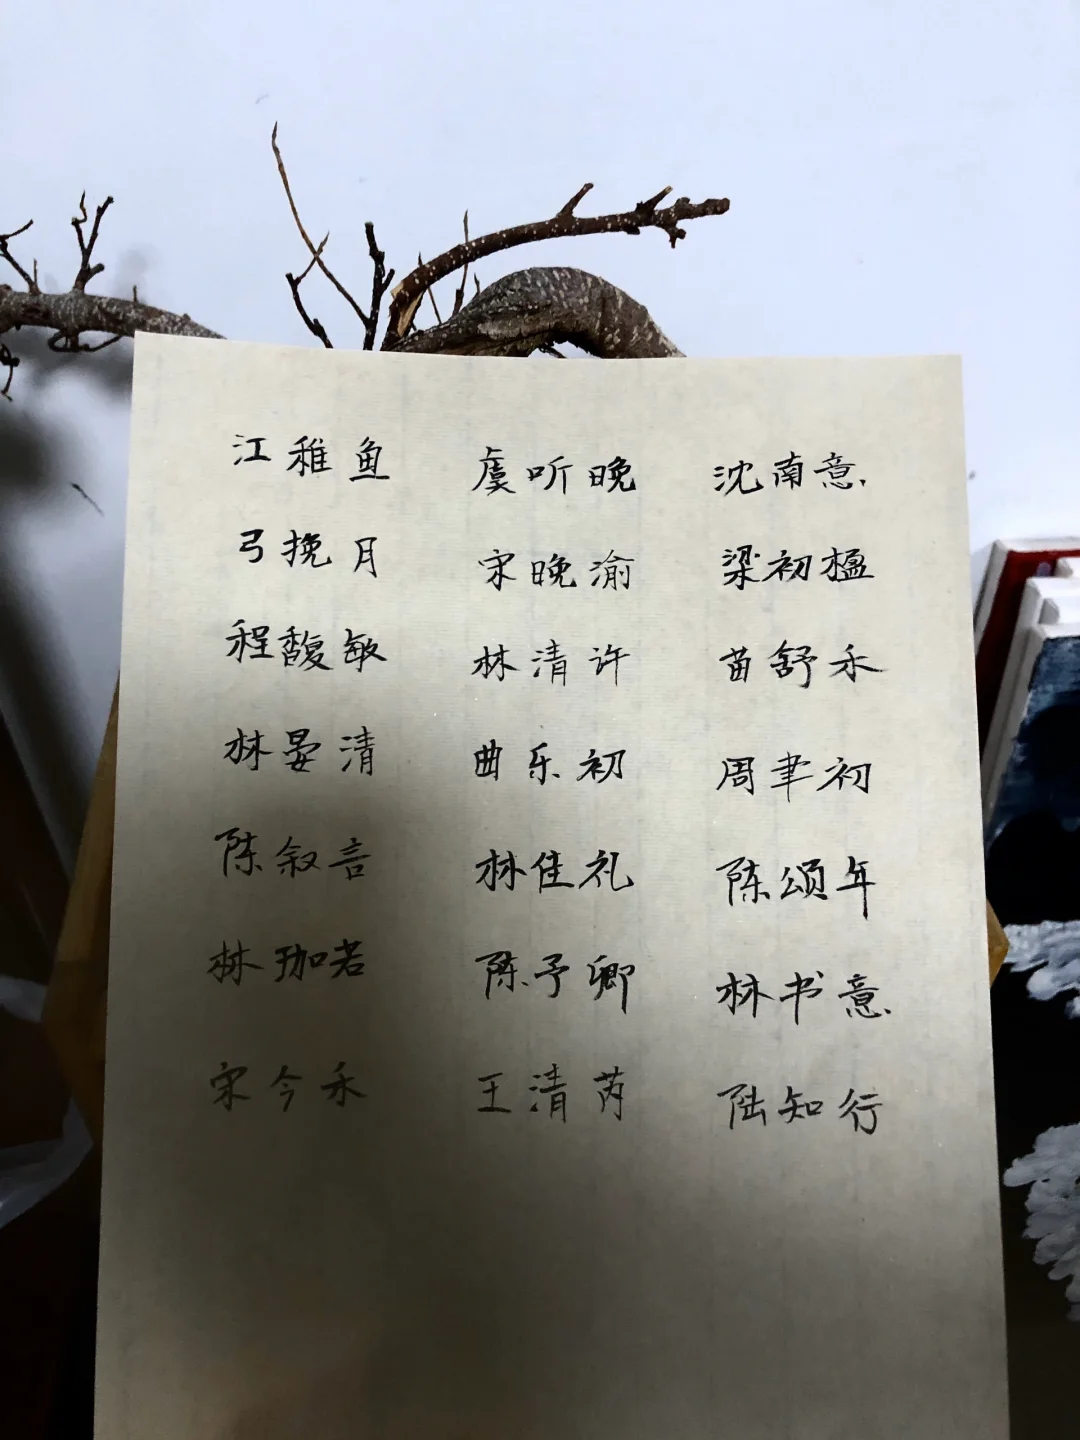 江稚鱼 虞听晚 沈南意
弓挽月 宋晚渝 梁初楹
程馥敏 林清许 苗舒禾
林晏清 曲乐初 周聿初
陈叙言 林佳礼 陈颂年
林珈若 陈予卿 林书意
宋今禾 王清芮 陆知行